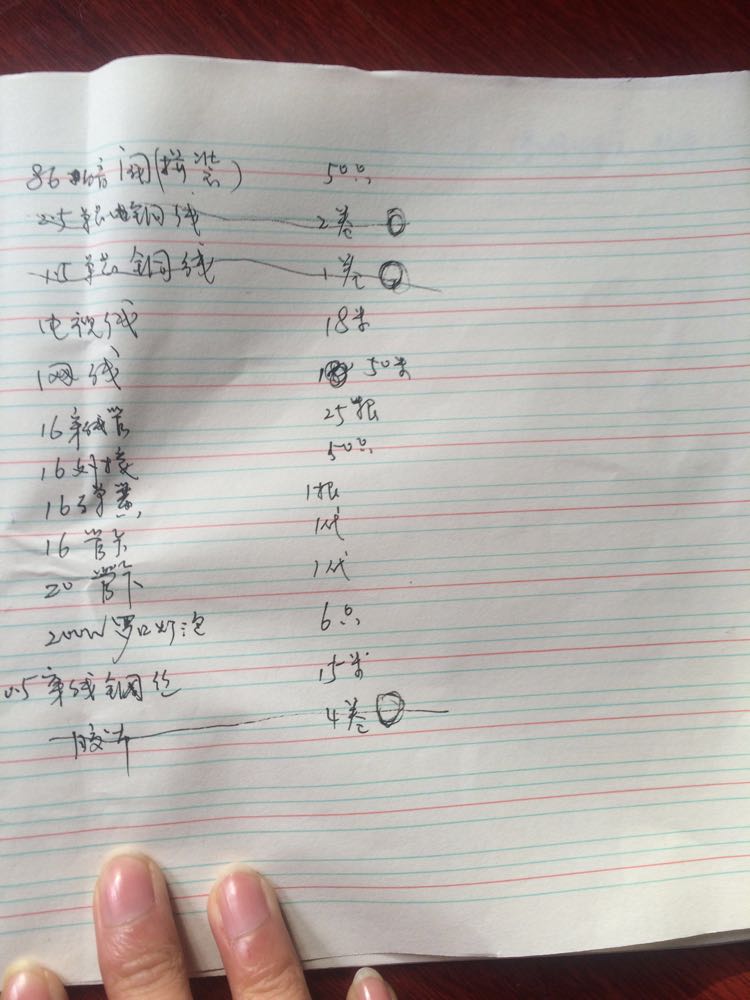 86暗闸(拼装) 50只
2.5单芯铜线 2卷
1.5单芯铜线 1卷
电视线 18米
网线 50米
16穿线管 25根
16对接 50只
16弹簧 1根
16管卡 1代
20管卡 1代
200W罗口灯泡 6只
穿线钢丝 15米
胶布 4卷